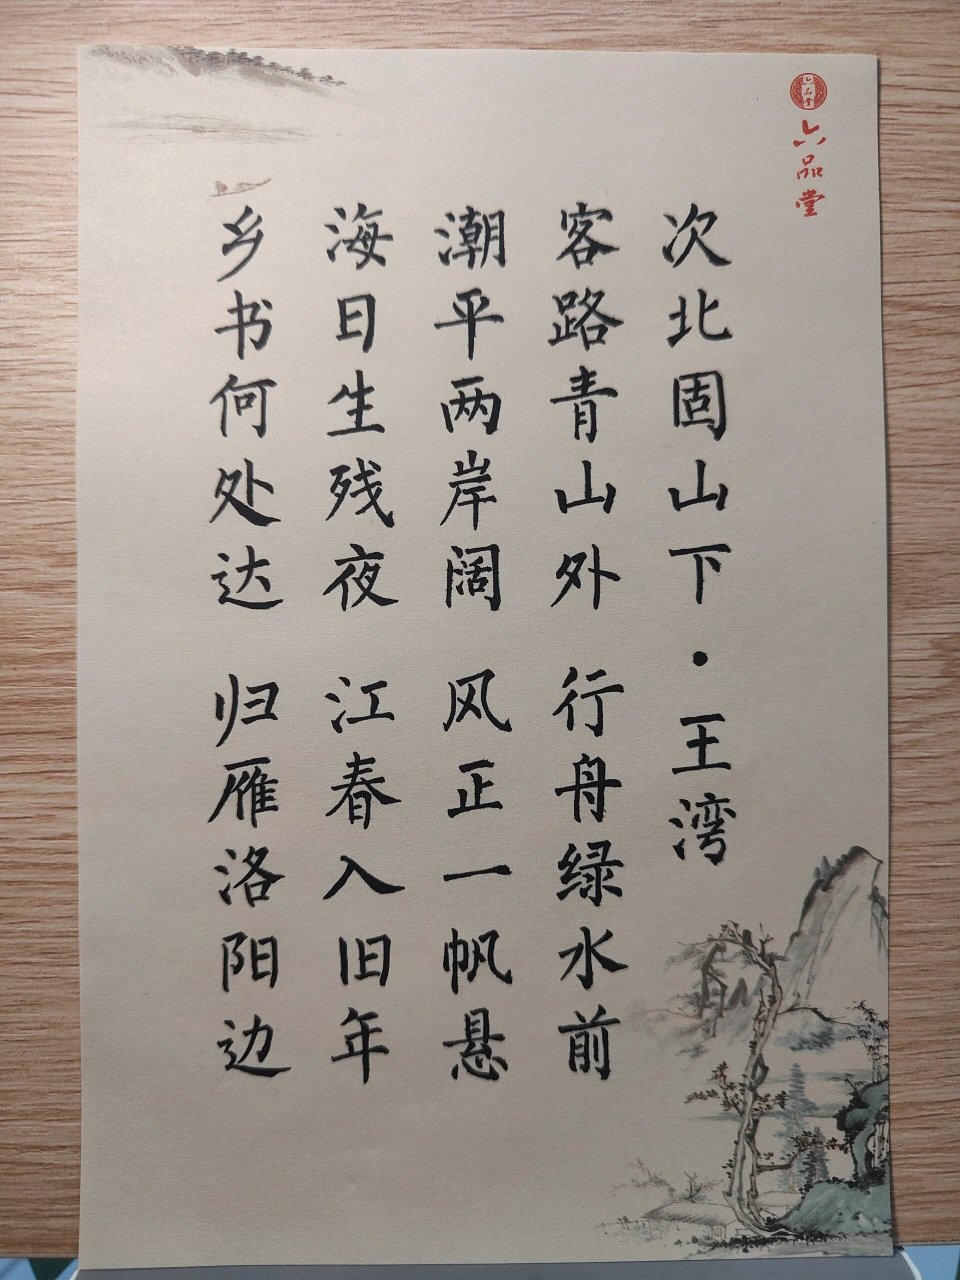 六品堂
六品堂
次北固山下·王湾
客路青山外 行舟绿水前
潮平两岸阔 风正一帆悬
海日生残夜 江春入旧年
乡书何处达 归雁洛阳边